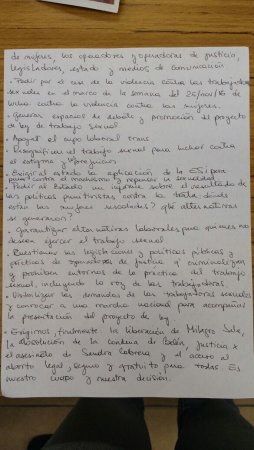 de mujeres, las operadores y operadoras de justicia,
legisladores, estado y medios de comunicación
• Pedir por el cese de la violencia contra las trabajadoras
sexuales en el marco de la semana del 25/nov/16 de
lucha contra la violencia contra las mujeres.
• Generar espacios de debate y promoción del proyecto
de ley de trabajo sexual
• Apoyar el cupo laboral trans
el trabajo sexual para luchar contra
el estigma y los prejuicios
• Exigir al estado la aplicación de la ESI para
contra el machismo y la sexualidad
• Pedir al Estado un informe sobre el resultado de
las políticas punitivistas contra la trata. ¿Dónde
están las mujeres rescatadas? ¿Qué alternativas
se generaron?
Garantizar alternativas laborales para quienes no
deseen ejercer el trabajo sexual
• las legislaciones y políticas públicas y
prácticas de operadores de justicia q' criminalizan
y prohiban entornos de la práctica del trabajo
sexual, incluyendo la voz de las trabajadoras
• Visibilizar las demandas de las trabajadoras sexuales
y convocar a una marcha nacional para acompañar
la presentación del proyecto de ley
• Exigimos, finalmente: la liberación de Milagro Sala,
la absolución de la condena de Belén, justicia x
el asesinato de Sandra Cabrera y el acceso al
aborto legal, seguro y gratuito para todas. Es
nuestro cuerpo y nuestra decisión.